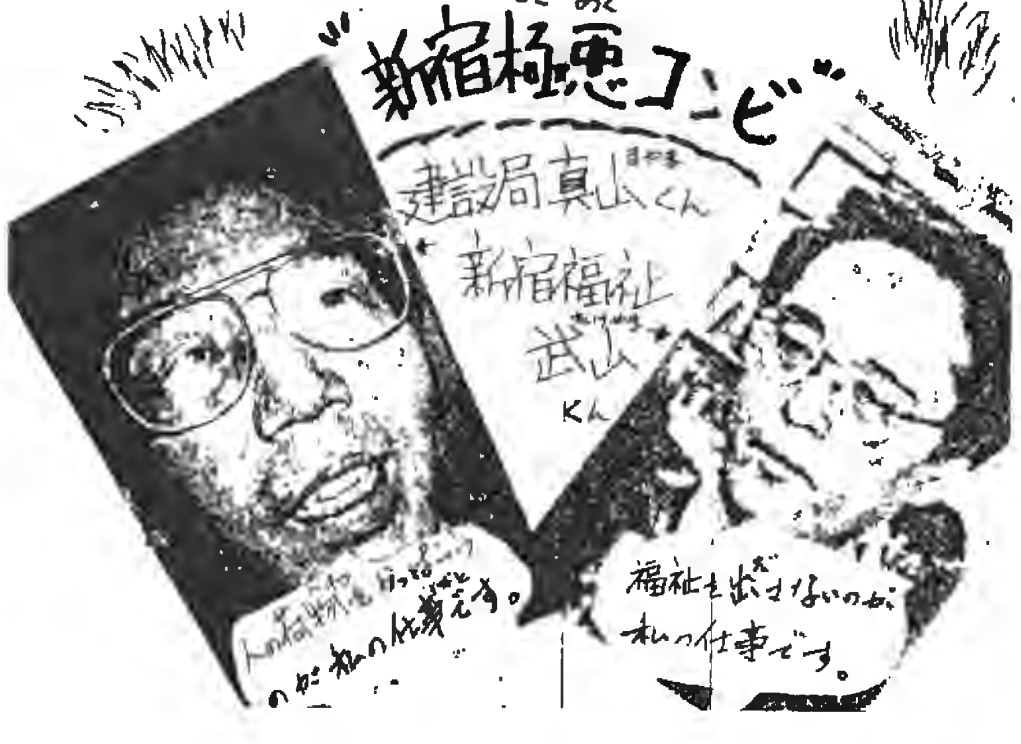 "新宿極悪コンビ"
建設局真山くん
新宿福祉
武山
Kん
のが私の仕事です。
福祉を出させないのが
私の仕事です。